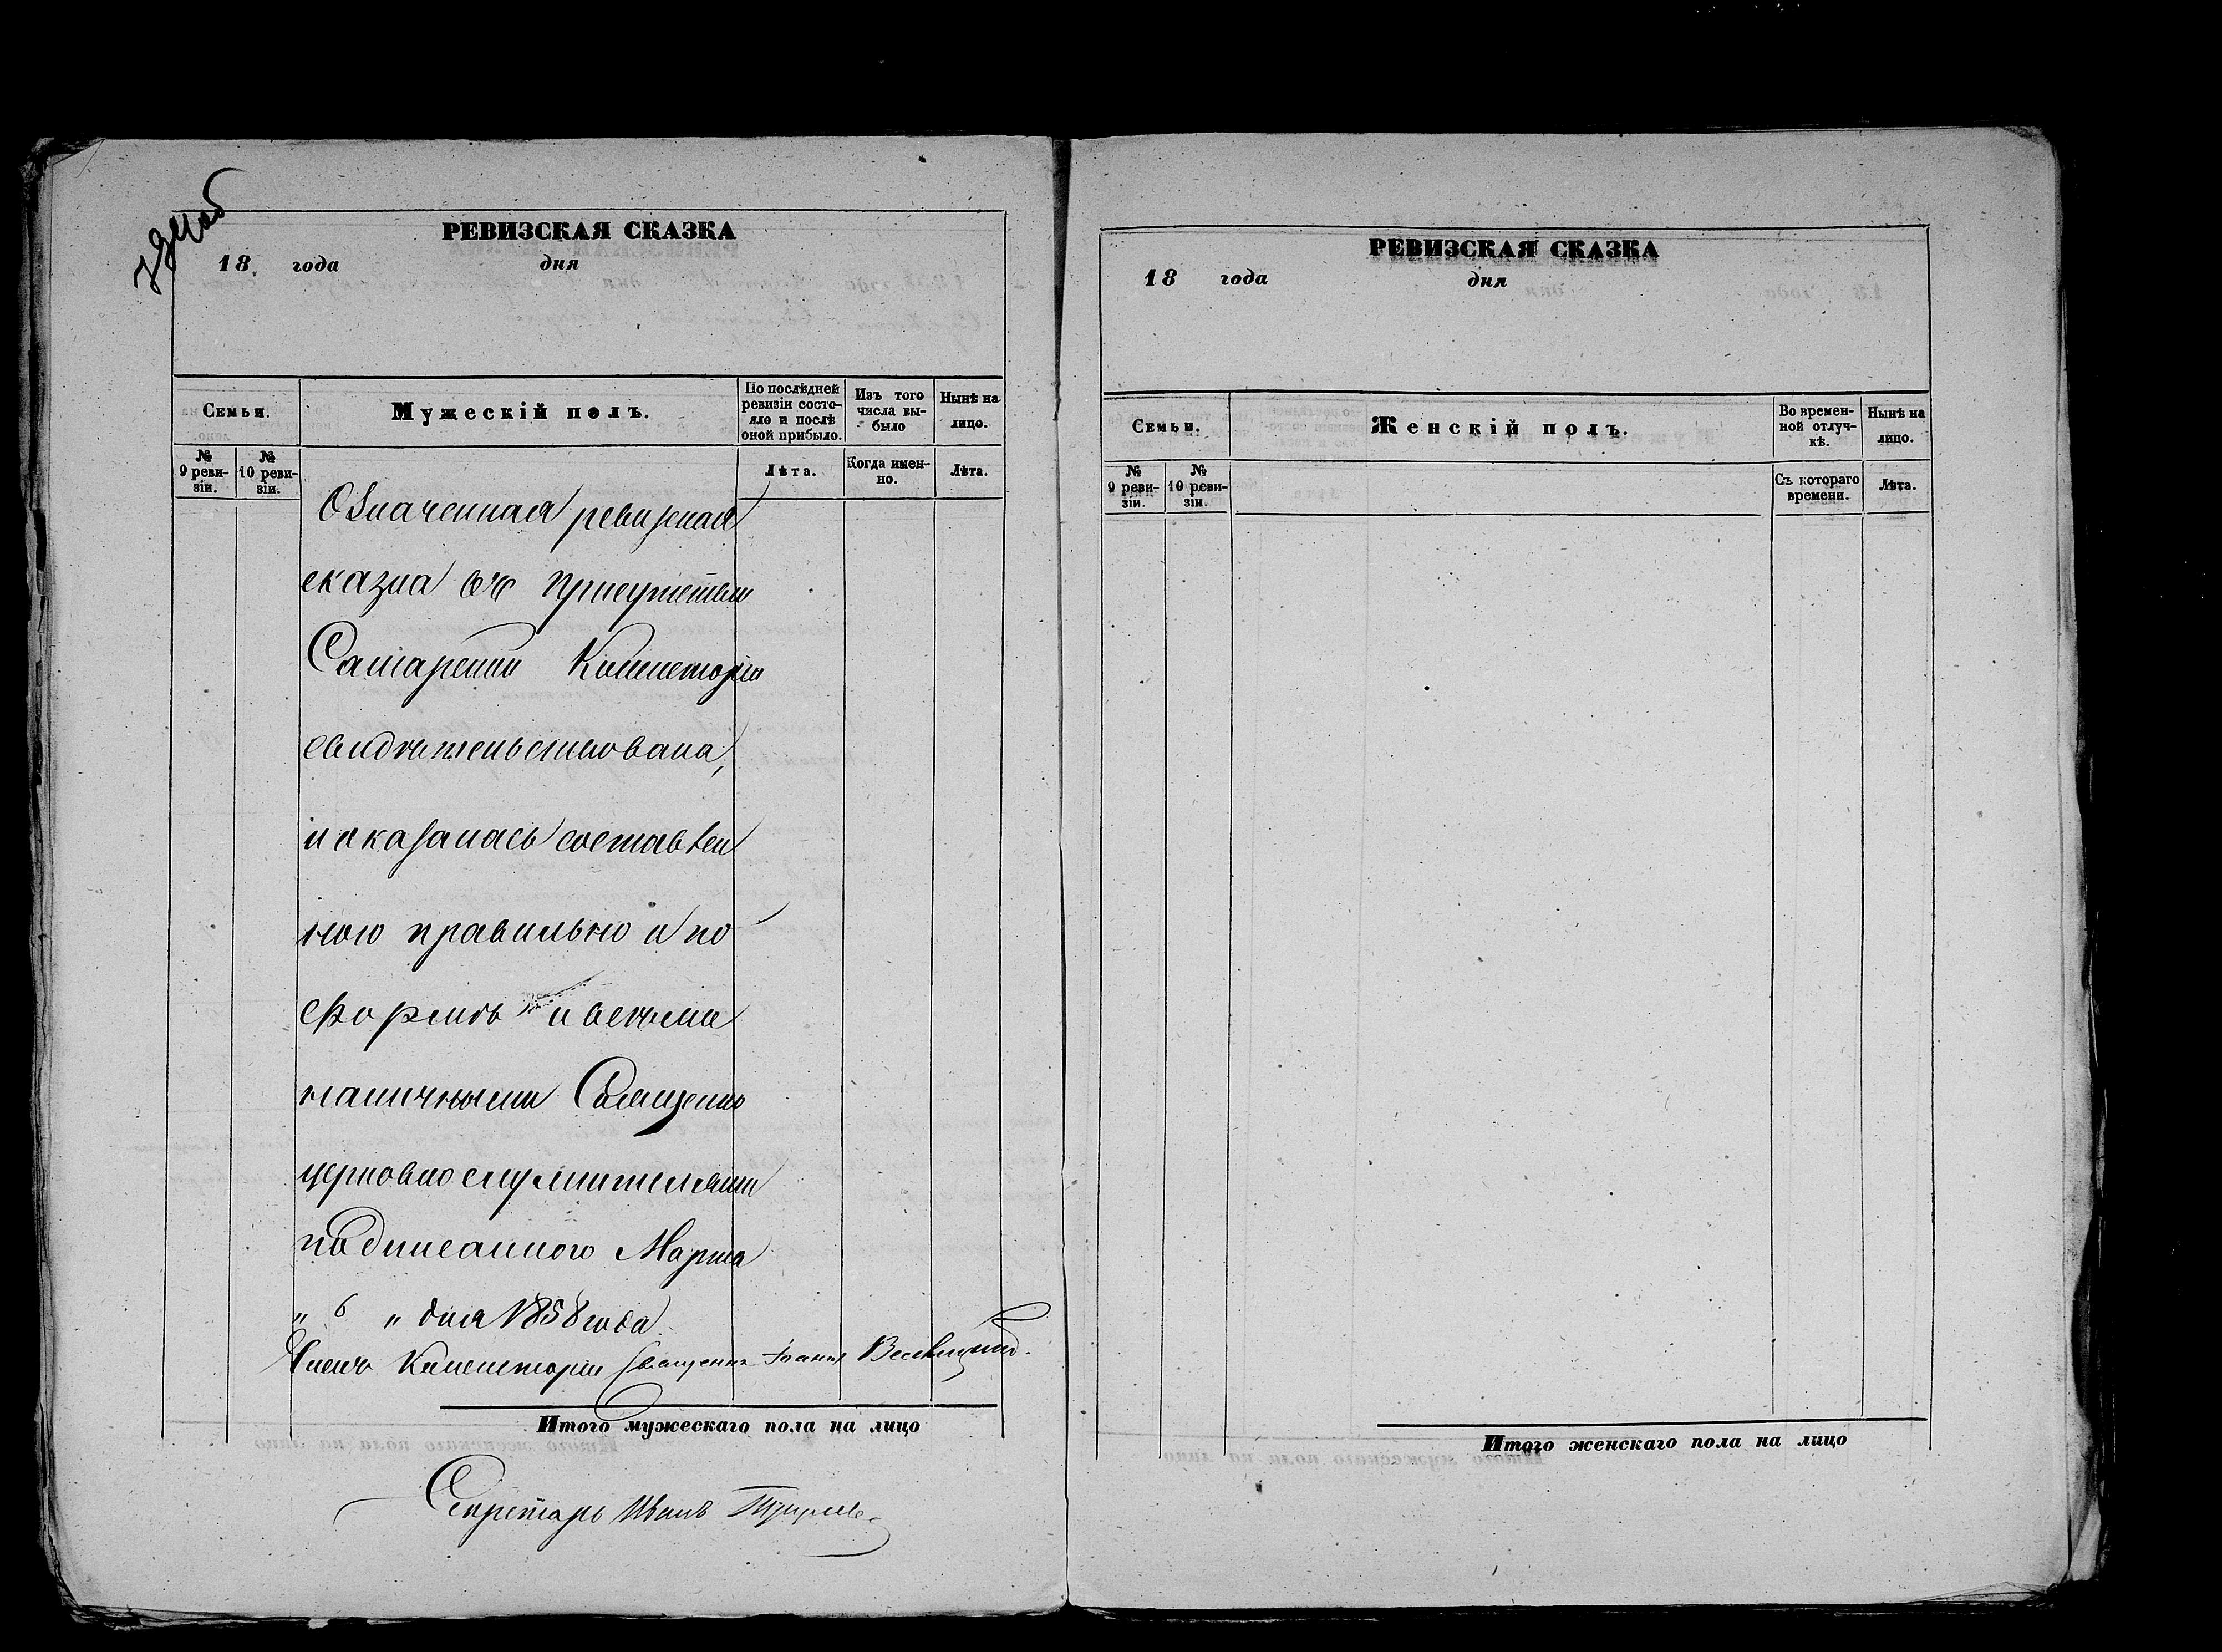 РЕВИЗСКАЯ СКАЗКА
18 года дня
Семьи.
Мужескій полъ.
По послѣдней ревизіи состояло и послѣ оной прибыло.
Изъ того числа выбыло
Нынѣ на лицо.
№ 9 ревизіи.
№ 10 ревизіи.
Лѣта.
Когда именно.
Лѣта.
Означенная ревизская
сказка въ присутствіи
Самарской Консисторіи
свидѣтельствована,
и оказалась составлен
ною правильно и по
формѣ и всѣми
наличными Священно
церковнослужителями
подписанною Марта
„ 6 „ дня 1858 года
Членъ Консисторіи Священникъ Іоаннъ
Итого мужескаго пола на лицо
Секретарь Иванъ
РЕВИЗСКАЯ СКАЗКА
18 года дня
Семьи.
Женскій полъ.
Во временной отлучкѣ.
Нынѣ на лицо.
№ 9 ревизіи.
№ 10 ревизіи.
Съ котораго времени.
Лѣта.
Итого женскаго пола на лицо